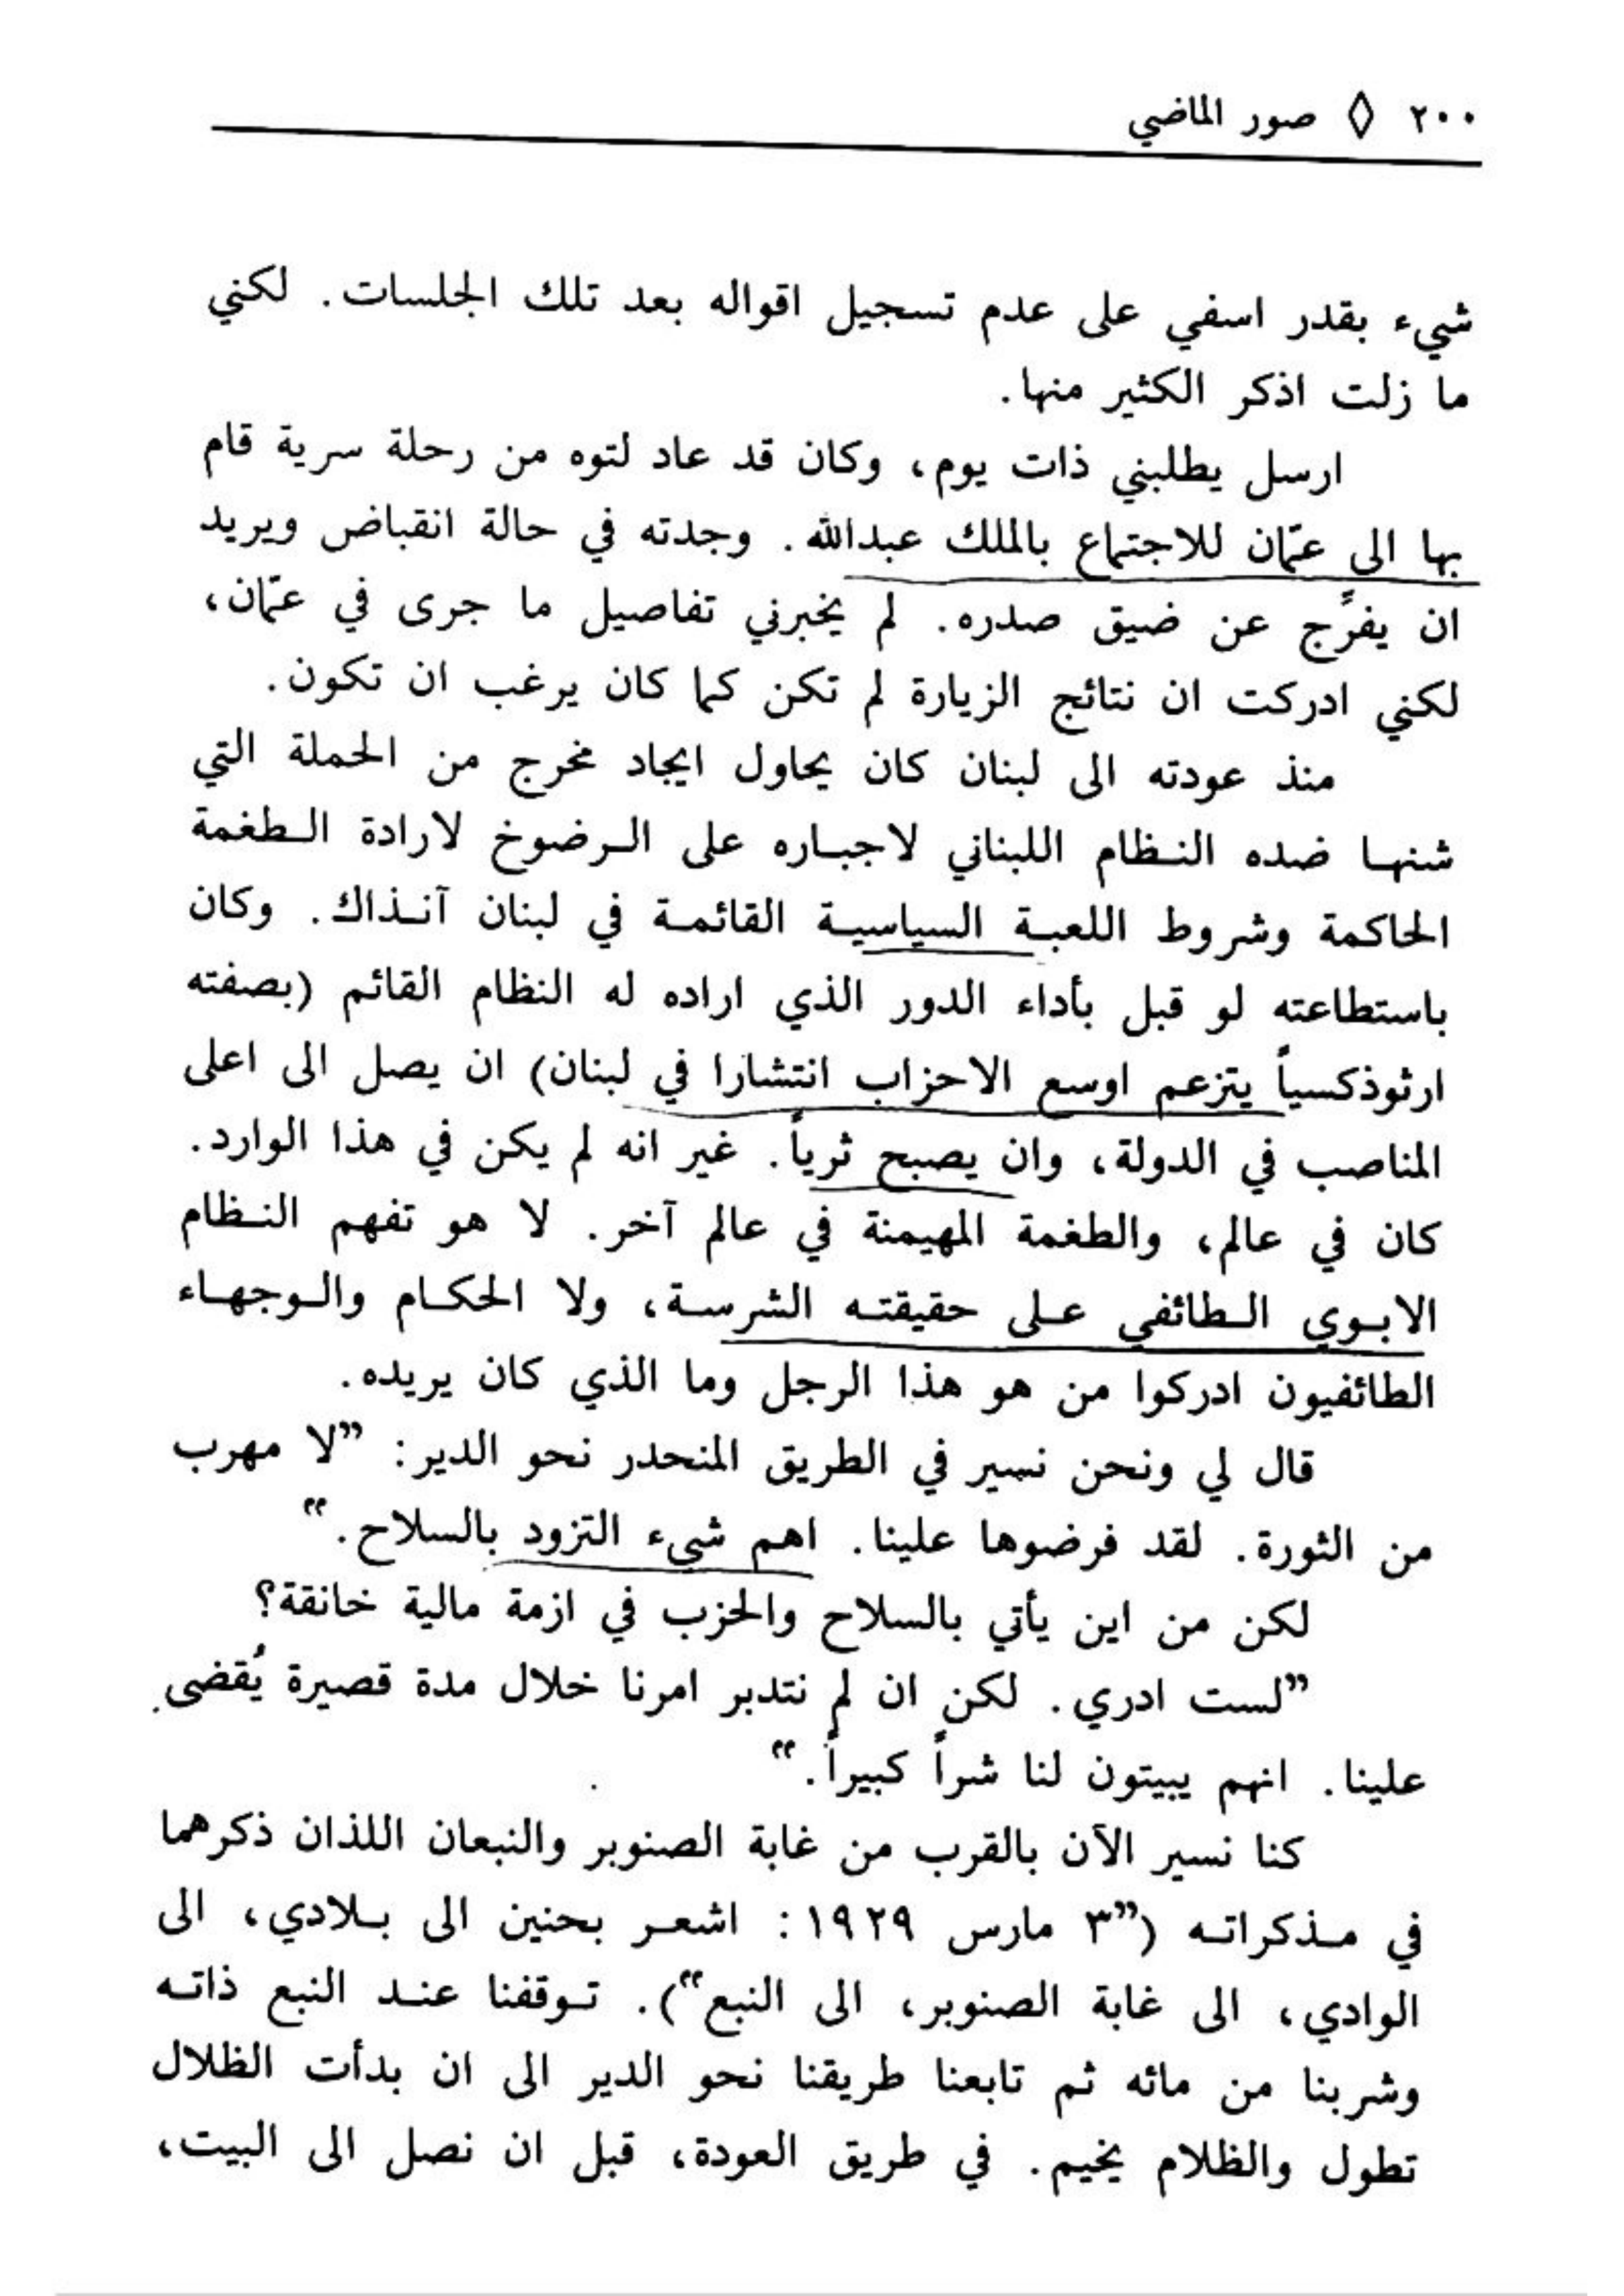 ٢٠٠ ◊ صور الماضي
شيء بقدر اسفي على عدم تسجيل اقواله بعد تلك الجلسات. لكني
ما زلت اذكر الكثير منها.
ارسل يطلبني ذات يوم، وكان قد عاد لتوه من رحلة سرية قام
بها الى عمّان للاجتماع بالملك عبدالله. وجدته في حالة انقباض ويريد
ان يفرّج عن ضيق صدره. لم يخبرني تفاصيل ما جرى في عمّان،
لكني ادركت ان نتائج الزيارة لم تكن كما كان يرغب ان تكون.
منذ عودته الى لبنان كان يحاول ايجاد مخرج من الحملة التي
شنها ضده النظام اللبناني لاجباره على الرضوخ لارادة الطغمة
الحاكمة وشروط اللعبة السياسية القائمة في لبنان آنذاك. وكان
باستطاعته لو قبل بأداء الدور الذي اراده له النظام القائم (بصفته
ارثوذكسياً يتزعم اوسع الاحزاب انتشارا في لبنان) ان يصل الى اعلى
المناصب في الدولة، وان يصبح ثرياً. غير انه لم يكن في هذا الوارد.
كان في عالم، والطغمة المهيمنة في عالم آخر. لا هو تفهم النظام
الابوي الطائفي على حقيقته الشرسة، ولا الحكام والوجهاء
الطائفيون ادركوا من هو هذا الرجل وما الذي كان يريده.
قال لي ونحن نسير في الطريق المنحدر نحو الدير: ”لا مهرب
من الثورة. لقد فرضوها علينا. اهم شيء التزود بالسلاح.“
لكن من اين يأتي بالسلاح والحزب في ازمة مالية خانقة؟
”لست ادري. لكن ان لم نتدبر امرنا خلال مدة قصيرة يُقضى
علينا. انهم يبيتون لنا شراً كبيراً.“
كنا نسير الآن بالقرب من غابة الصنوبر والنبعان اللذان ذكرهما
في مذكراته (”٣ مارس ١٩٢٩: اشعر بحنين الى بلادي، الى
الوادي، الى غابة الصنوبر، الى النبع“). توقفنا عند النبع ذاته
وشربنا من مائه ثم تابعنا طريقنا نحو الدير الى ان بدأت الظلال
تطول والظلام يخيم. في طريق العودة، قبل ان نصل الى البيت،